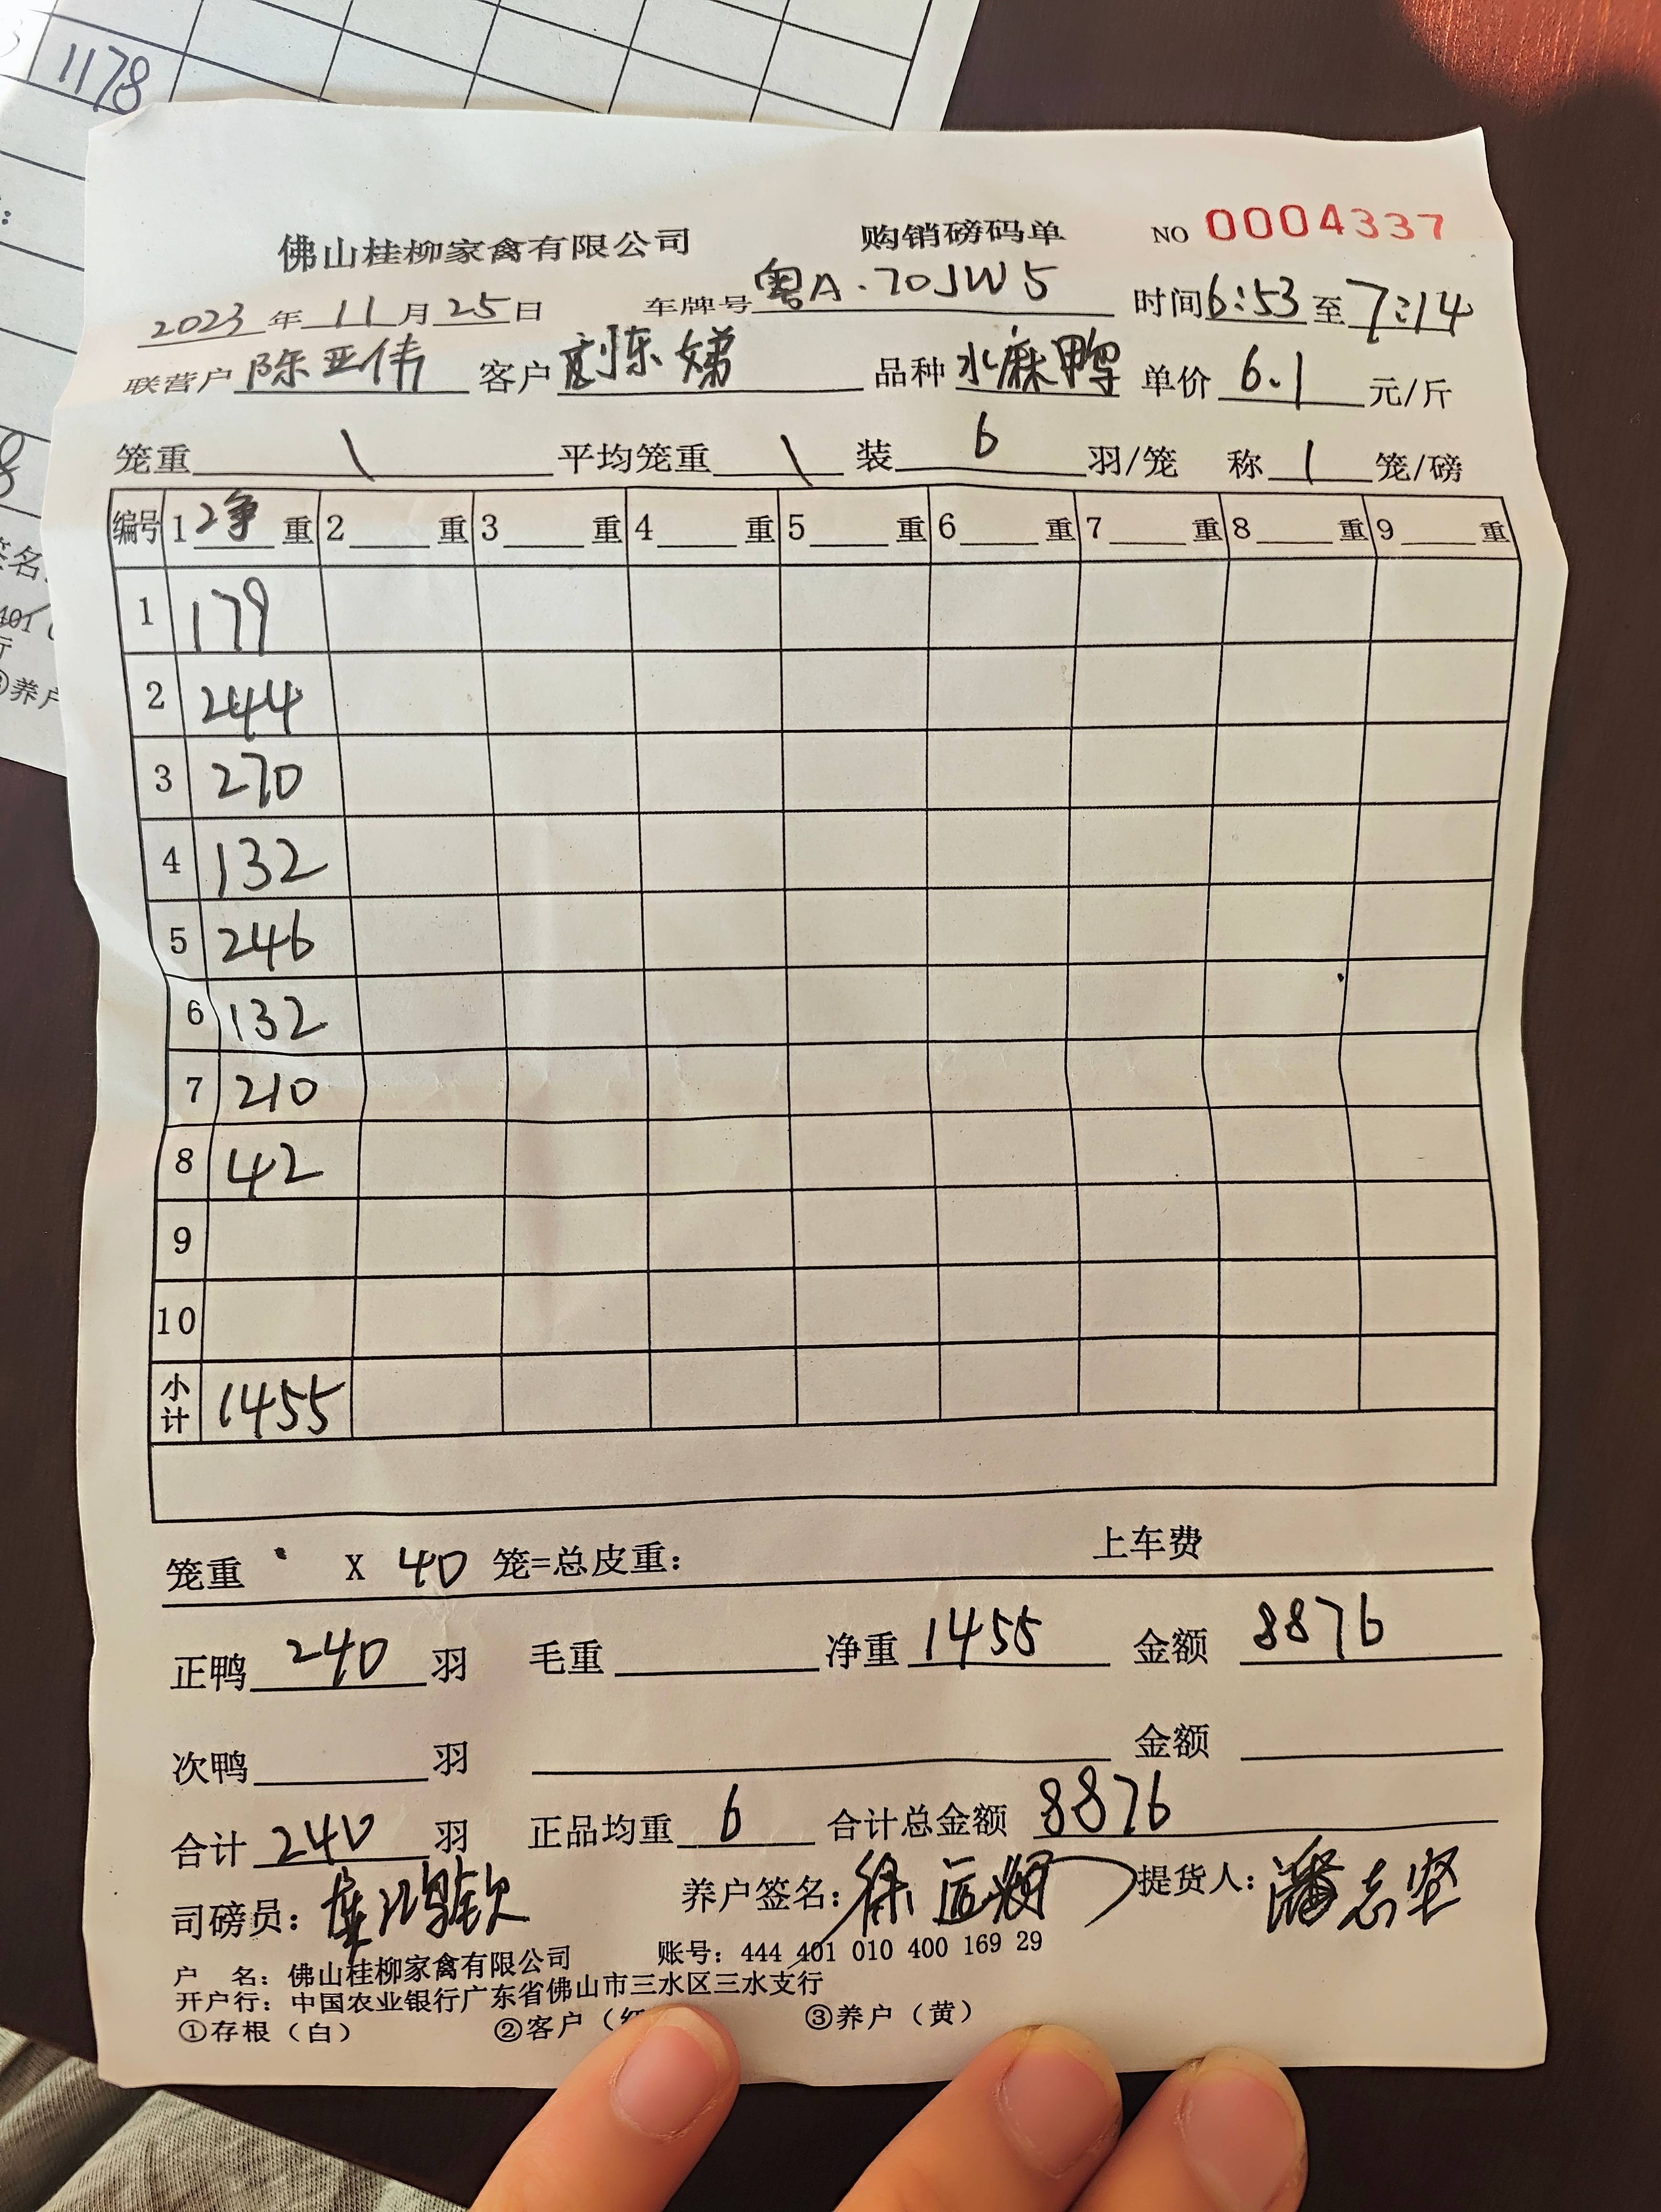 1178
佛山桂柳家禽有限公司 购销磅码单 NO 0004337
2023年11月25日 车牌号粤A·70JW5 时间6:53至7:14
联营户陈亚伟 客户刘陈娣 品种水麻鸭 单价6.1元/斤
笼重\ 平均笼重\ 装6羽/笼 称1笼/磅
编号 1净重 2重 3重 4重 5重 6重 7重 8重 9重
1 179
2 244
3 270
4 132
5 246
6 132
7 210
8 42
9
10
小计 1455
笼重 X 40 笼=总皮重: 上车费
正鸭240羽 毛重 净重1455 金额8876
次鸭 羽 金额
合计240羽 正品均重6 合计总金额8876
司磅员: 养户签名:徐 提货人:潘志坚
户 名: 佛山桂柳家禽有限公司 账号: 444 401 010 400 169 29
开户行: 中国农业银行广东省佛山市三水区三水支行
①存根(白) ②客户( ③养户(黄)